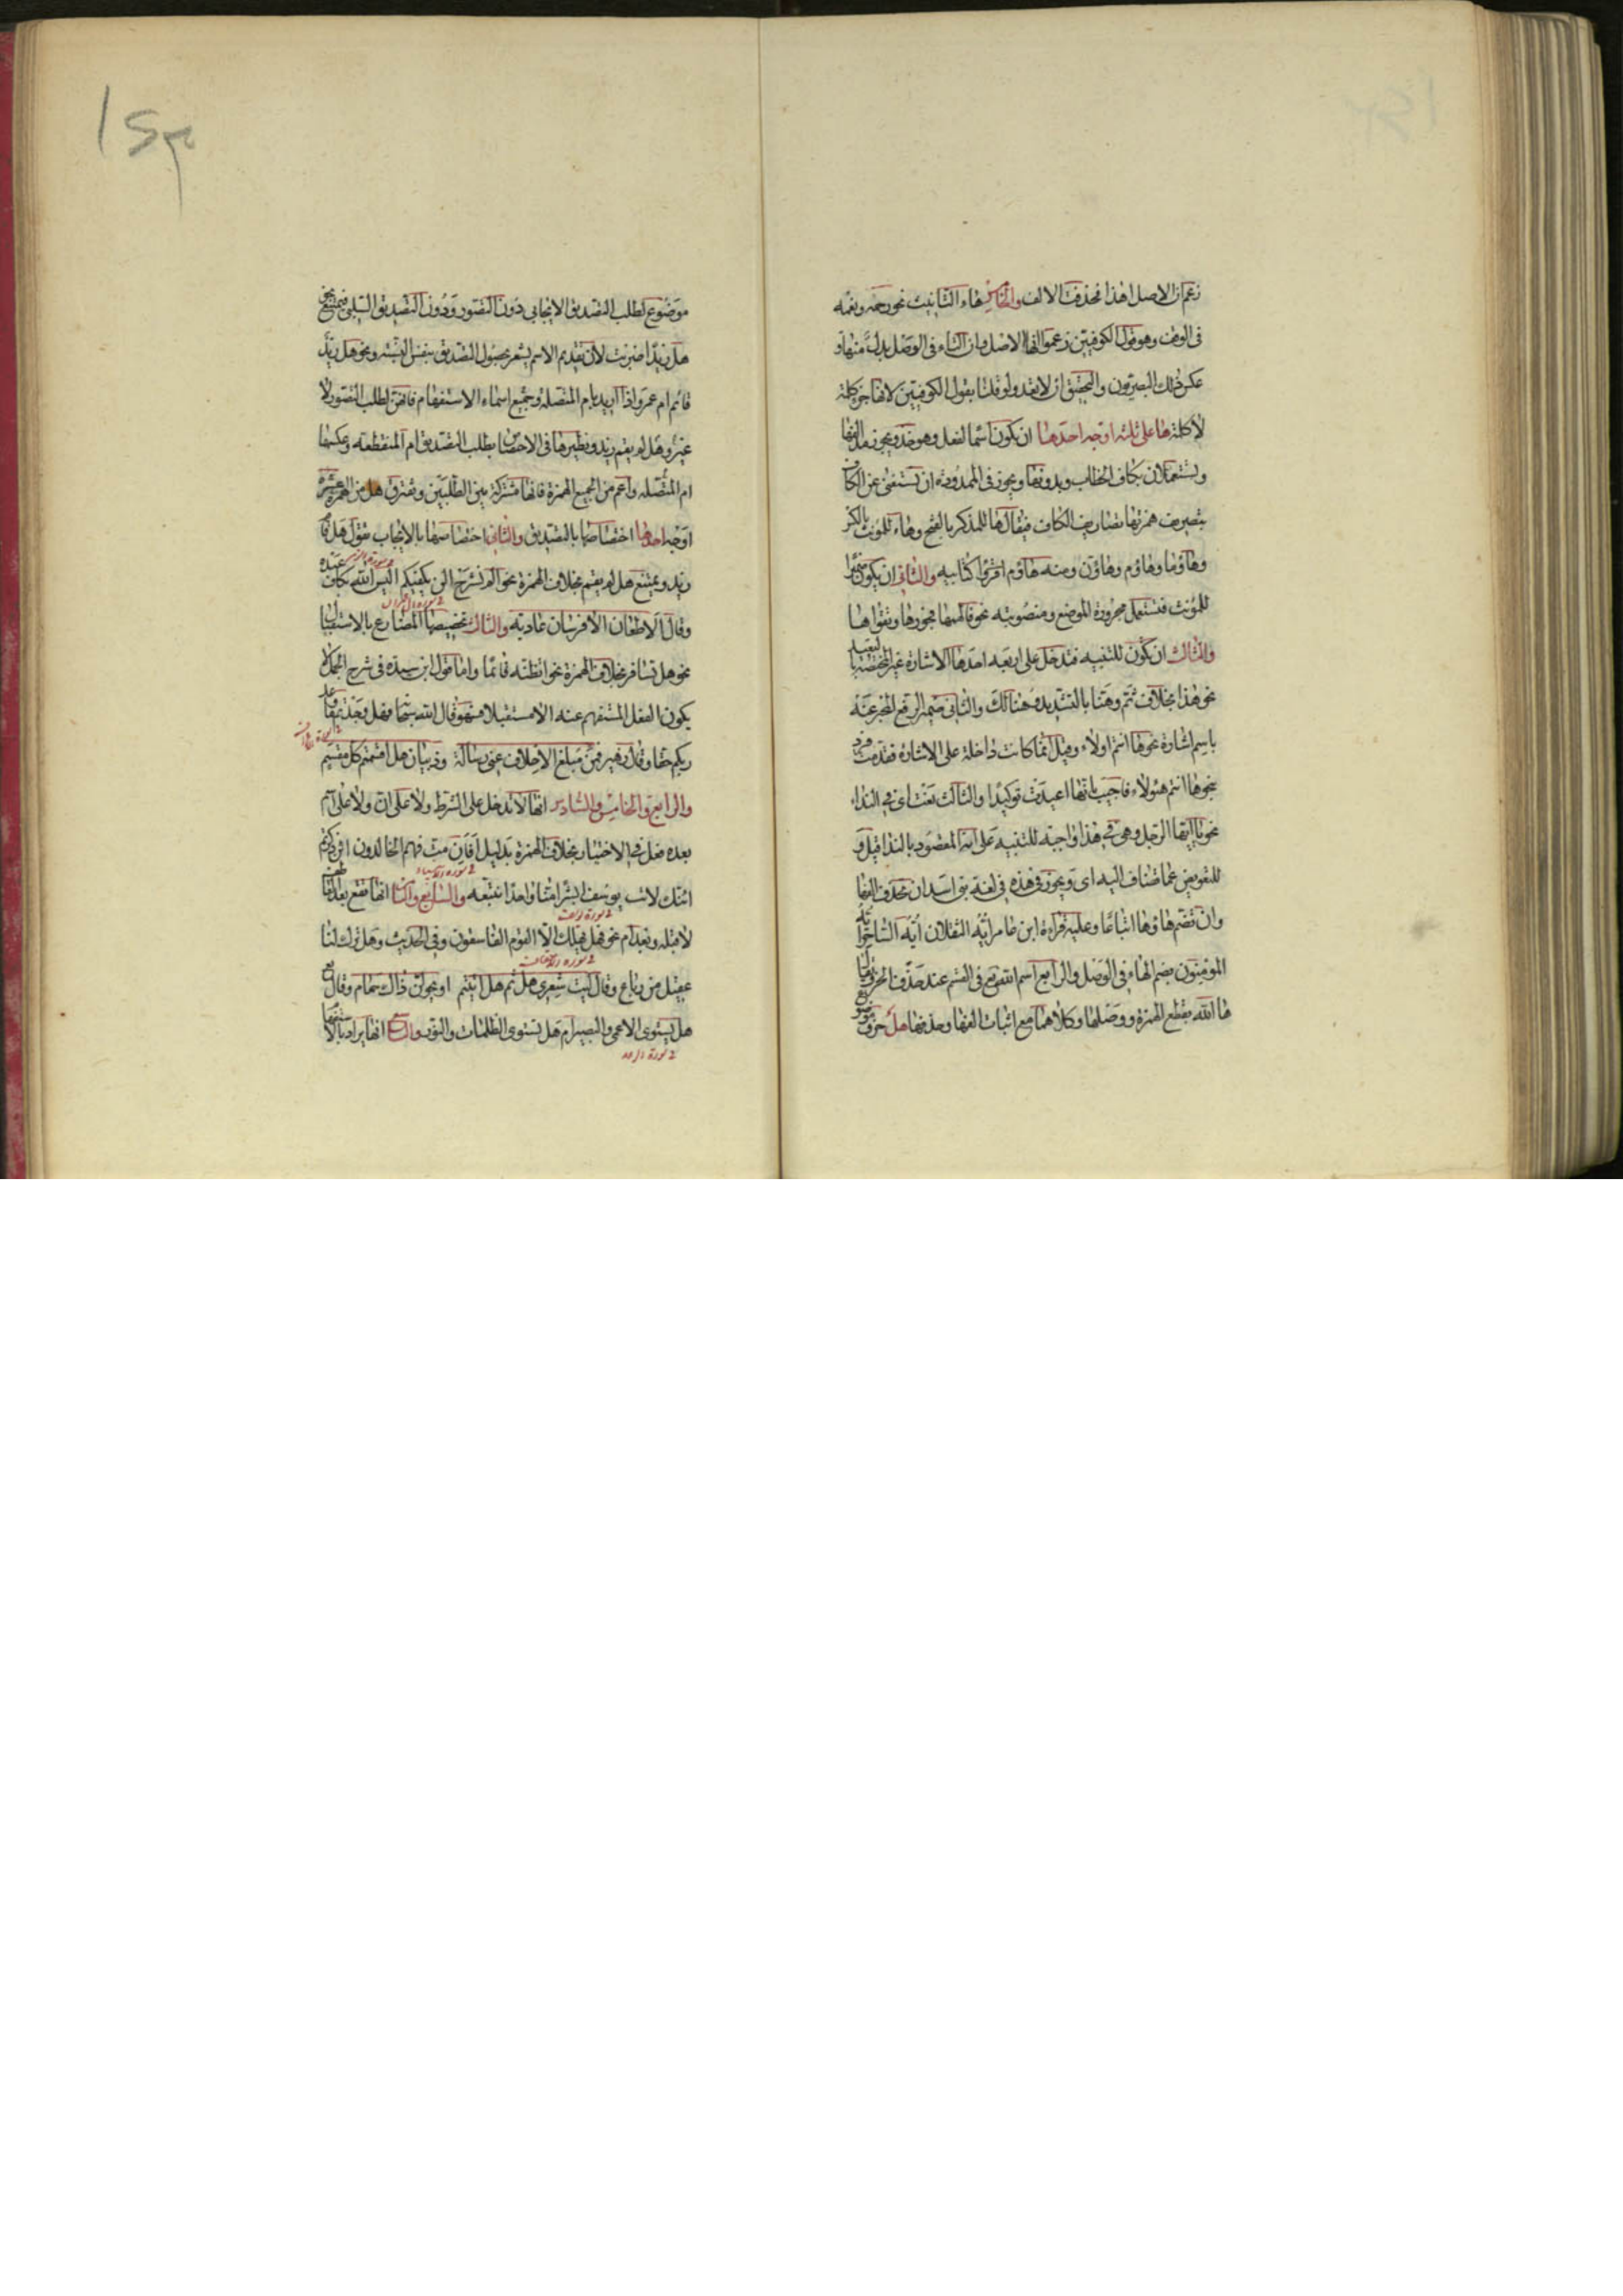 زعم ان الاصل اهذا فحذفت الالف والخامس هاء التانيث نحو رحمه ونعمه
فى الوقف وهو قول الكوفيين زعموا انها الاصل وان التاء فى الوصل بدل منها و
عكس ذلك البصريون والتحقيق ان لا تعد ولو قلنا بقول الكوفيين لانها جزء كلمة
لا كلمة ها على ثلثة اوجه احدها ان يكون اسما لفعل وهو خذ ويجوز مد الفها
ويستعملان بكاف الخطاب وبدونها ويجوز فى الممدودة ان تستغنى عن الكاف
بتصريف همزتها تصاريف الكاف فيقال هاء للمذكر بالفتح وهاء للمؤنث بالكسر
وهاؤما وهاؤم وهاؤن ومنه هاؤم اقرؤا كتابيه والثانى ان يكون ضميرا
للمؤنث فتستعمل مجرورة الموضع ومنصوبته نحو فالهمها فجورها وتقواها
والثالث ان تكون للتنبيه فتدخل على اربعة احدها الاشارة غير المختصة بالبعيد
نحو هذا بخلاف ثم وهنا بالتشديد وهنالك والثانى ضمير الرفع المخبر عنه
باسم اشارة نحو ها انتم اولاء وقيل انما كانت داخلة على الاشارة فقدمت فرد
بنحو ها انتم هؤلاء فاجيب بانها اعيدت توكيدا والثالث نعت اى فى النداء
نحو يا ايها الرجل وهى فى هذا واجبة للتنبيه على انه المقصود بالنداء قيل و
للتعويض عما تضاف اليه اى ويجوز فى هذه فى لغة بنى اسد ان تحذف الفها
وان تضم هاؤها اتباعا وعليه قراءة ابن عامر ايه الثقلان ايه الساحر ايه
المؤمنون بضم الهاء فى الوصل والرابع اسم الله تع فى القسم عند حذف الحرف يقال
ها الله بقطع الهمزة ووصلها وكلاهما مع اثبات الفها وحذفها هل حرف موضوع
١٤٣
موضوع لطلب التصديق الايجابى دون التصور ودون التصديق السلبى فيمتنع نحو
هل زيدا ضربت لان تقديم الاسم يشعر بحصول التصديق بنفس النسبة ونحو هل زيد
قائم ام عمرو اذا اريد بام المتصلة وجميع اسماء الاستفهام فانهن لطلب التصور لا
غير وهل لم يقم زيد ونظيرها فى الاختصاص بطلب التصديق ام المنقطعة وعكسها
ام المتصلة واعم من الجميع الهمزة فانها مشتركة بين الطلبين وتفترق هل من الهمزة عشرة
اوجه احدها اختصاصها بالتصديق والثانى اختصاصها بالايجاب تقول هل قام
زيد ويمتنع هل لم يقم بخلاف الهمزة نحو الم نشرح الن يكفيكم اليس الله بكاف عبده
وقال الا طعان الا فرسان عادية والثالث تخصيصها المضارع بالاستقبال
نحو هل تسافر بخلاف الهمزة نحو اتظنه قائما واما قول ابن سيده فى شرح الجمل لا
يكون الفعل المستفهم عنه الا مستقبلا فسهو قال الله سبحانه فهل وجدتم ما وعد
ربكم حقا وقال زهير فمن مبلغ الاحلاف عنى رسالة وذبيان هل اقسمتم كل مقسم
والرابع والخامس والسادس انها لا تدخل على الشرط ولا على ان ولا على اسم
بعده فعل فى الاختيار بخلاف الهمزة بدليل افان مت فهم الخالدون ائن ذكرتم
ائنك لانت يوسف ابشرا منا واحدا نتبعه والسابع والثامن انها تقع بعد العاطف
لا قبله وبعد ام نحو فهل يهلك الا القوم الفاسقون وفى الحديث وهل ترك لنا
عقيل من رباع وقال ليت شعرى هل ثم هل اتينهم او يحولن ذاك حمام وقال تع
هل يستوى الاعمى والبصير ام هل تستوى الظلمات والنور والتاسع انها يراد بالاستفهام